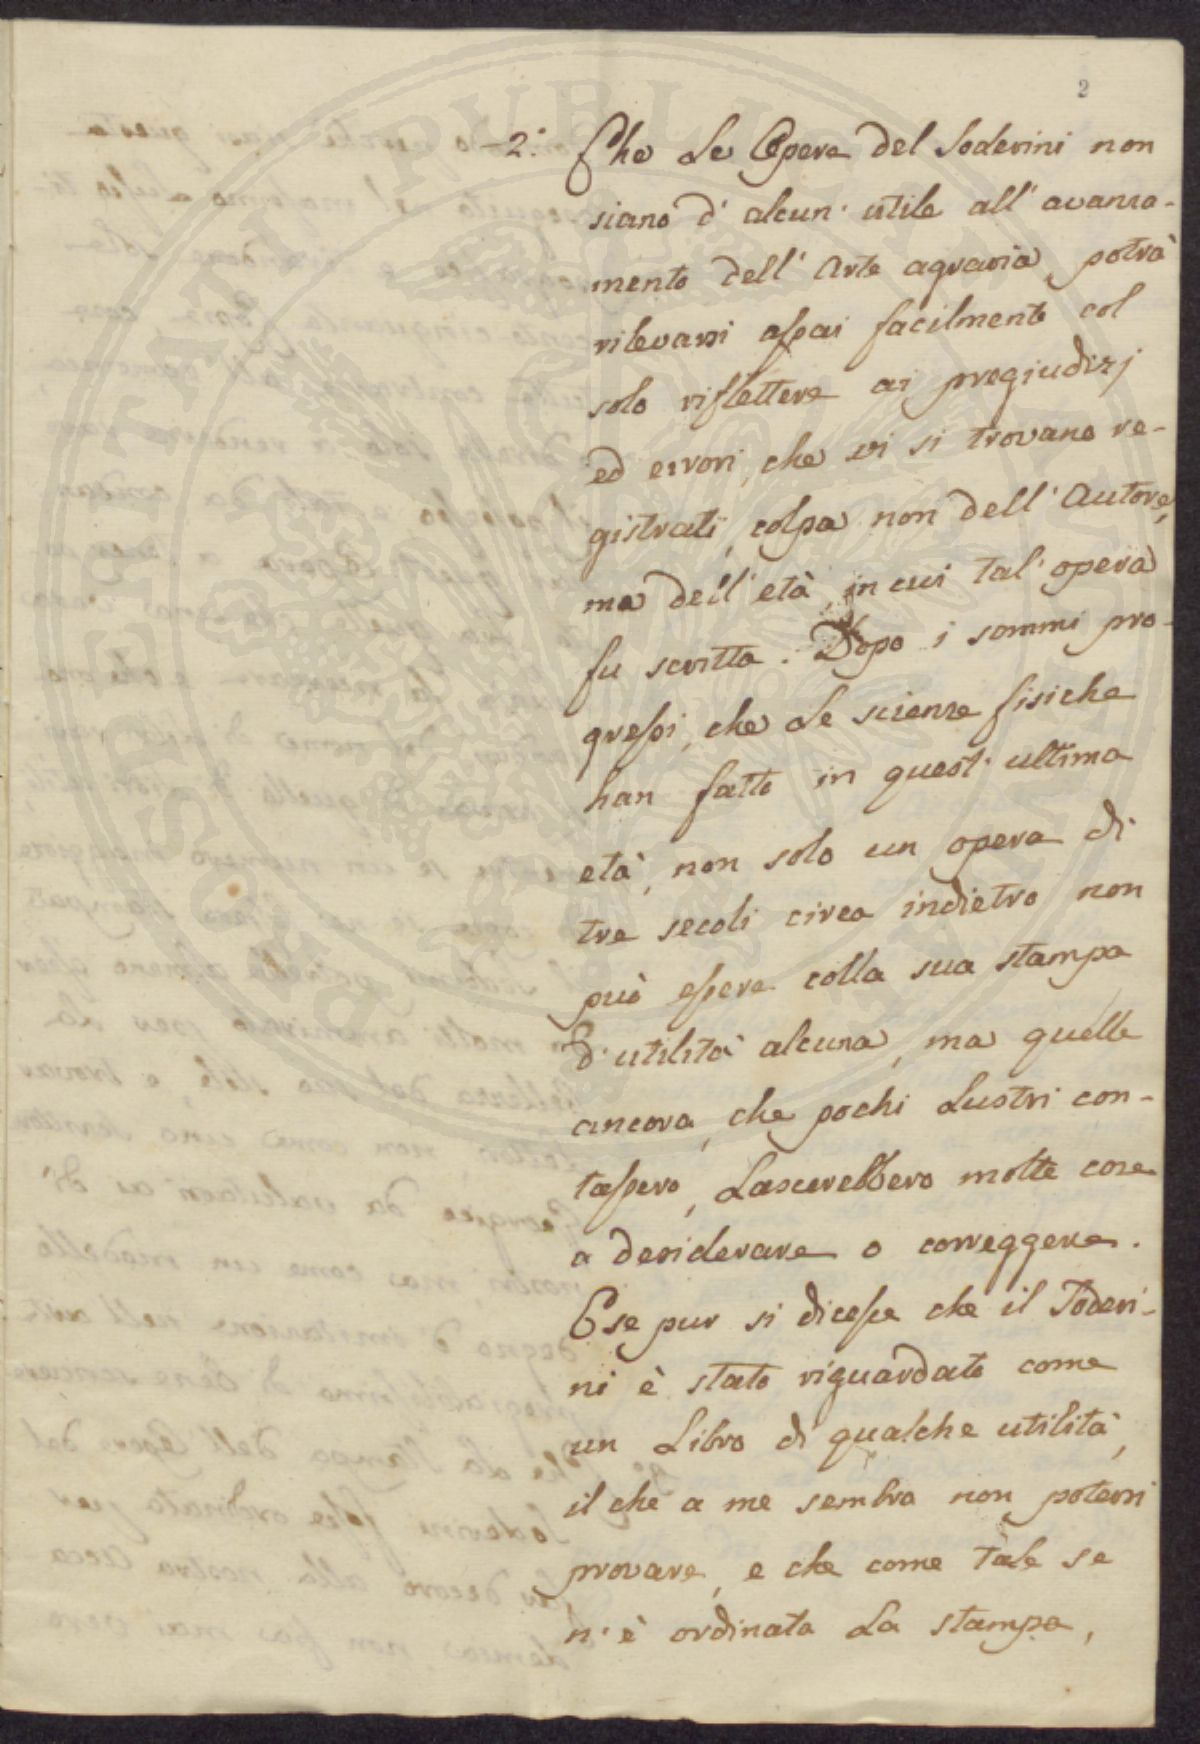 2
2.° Che Le Opere del Soderini non
siano d'alcun' utile all' avanza-
mento dell' Arte agraria, potrà
rilevarsi assai facilmente col
solo riflettere ai pregiudizj
ed errori, che vi si trovano re-
gistrati, colpa non dell' Autore,
ma dell' età, in cui tal' opera
fu scritta. Dopo i sommi pro-
gressi, che Le scienze fisiche
han fatto in quest' ultima
età, non solo un opera di
tre secoli circa indietro non
può essere colla sua stampa
d'utilità alcuna, ma quelle
ancora, che pochi Lustri con-
tassero, Lascerebbero molte cose
a desiderare o correggere.
E se pur si dicesse che il Soderi-
ni è stato riguardato come
un Libro di qualche utilità,
il che a me sembra non potersi
provare, e che come tale se
n'è ordinata La stampa,
PROSPERITATI PUBLICAE AUGENDAE